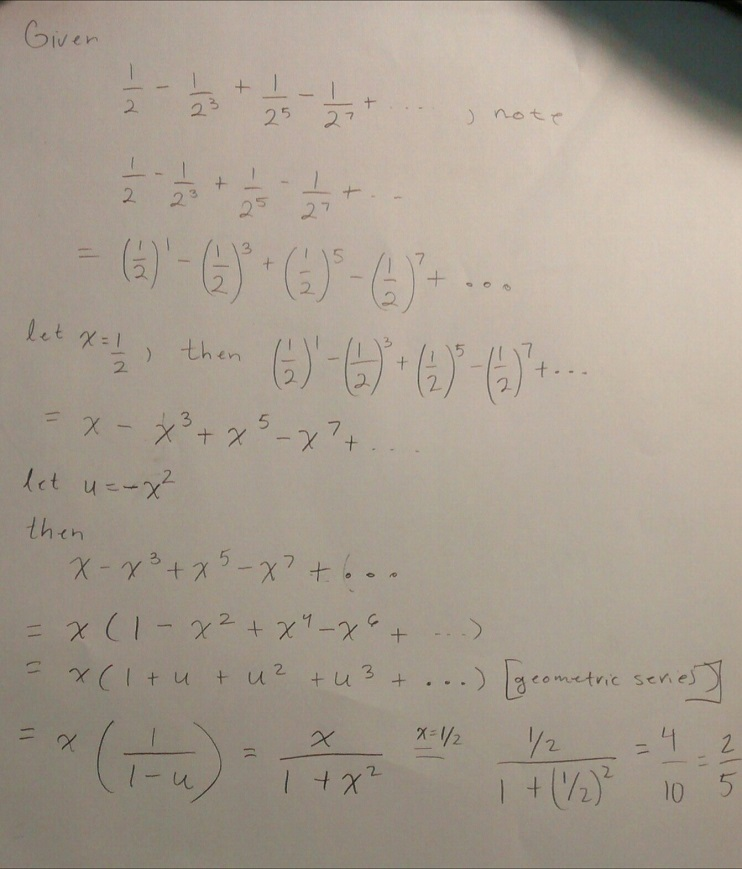 Given
1/2 - 1/2³ + 1/2⁵ - 1/2⁷ + .... , note
1/2 - 1/2³ + 1/2⁵ - 1/2⁷ + ...
= (1/2)¹ - (1/2)³ + (1/2)⁵ - (1/2)⁷ + ...
let x = 1/2 , then (1/2)¹ - (1/2)³ + (1/2)⁵ - (1/2)⁷ + ...
= x - x³ + x⁵ - x⁷ + ....
let u = -x²
then
x - x³ + x⁵ - x⁷ + ...
= x (1 - x² + x⁴ - x⁶ + ...)
= x (1 + u + u² + u³ + ...) [geometric series]
= x (1/(1-u)) = x/(1+x²) x=1/2 = (1/2)/(1+(1/2)²) = 4/10 = 2/5